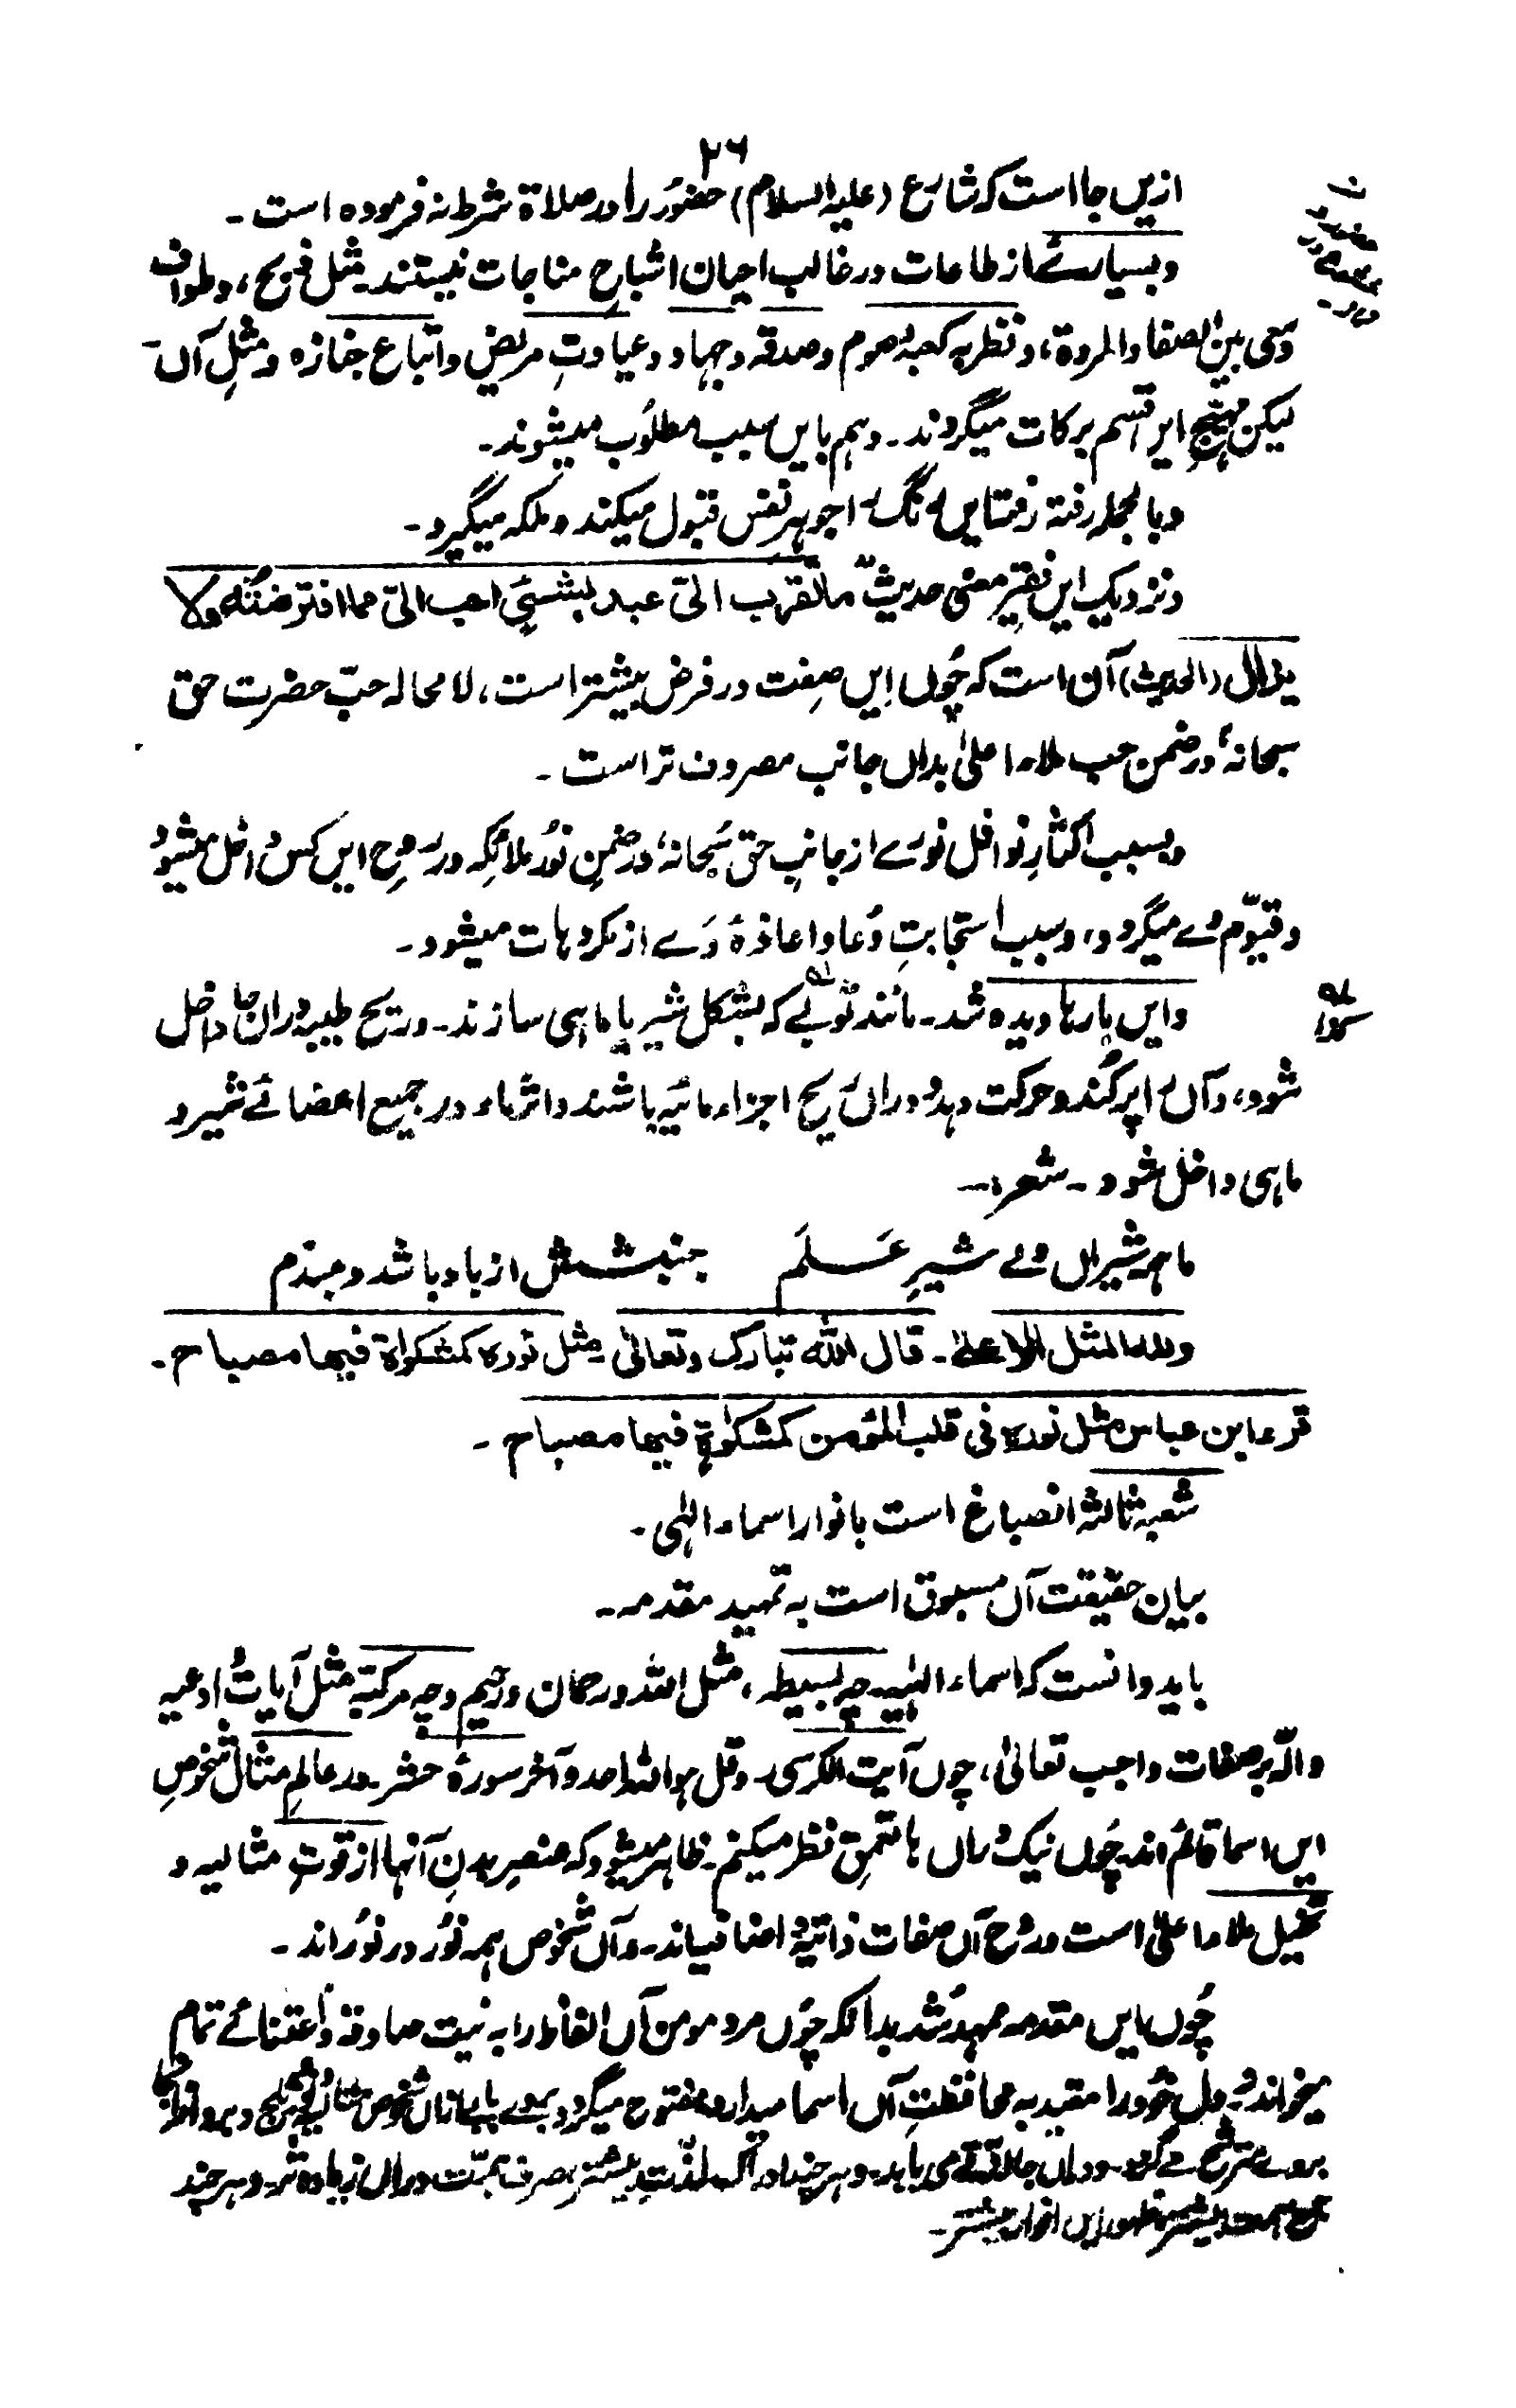 ۲۶
ازیں جا است که شارع (علیہ السلام) حضور را در صلاة شرط نه فرموده است ۔
و بسیارے از طاعات در غالب احیان اشباحِ مناجات نیستند۔ مثل ذبح، و طواف
و سعی بین الصفا والمروة، و نظر به کعبه و صوم و صدقه و جهاد و عیادتِ مریض و اتباع جنازه و مثلِ آں۔
لیکن مهیّجِ ایں قسم برکات میگردند۔ و هم بایں سبب مطلوُب میشوند۔
و بالجمله رفته رفته ایں رنگ را جوهرِ نفس قبول میکند و ملکه میگیرد۔
و نزدیک ایں فقیر معنی حدیث ما تقرب الیّ عبد بشئیٍ احب الیّ مما افترضتُه ولا
یزال (الحدیث) آن است که چُوں اِیں صِفت در فرض بیشتر است، لامحاله حبّ حضرت حق
سبحانهٗ در ضمن حب ملاء اعلیٰ بداں جانب مصروف تر است ۔
و بسبب اکثارِ نوافل نورے از جانبِ حق سُبحانهٗ در ضمنِ نوُر ملائکه در رُوحِ ایں کس داخل میشود
و قیوّم وے میگردد، و سببِ استجابتِ دُعا و اعاذهٔ وَے از مکروهات میشود۔
و ایں بارها دیده شد۔ مانند ثوبے که بشکل شیر یا ماهی سازند۔ و ریح طیبه دراں جا داخل
شود، و آں را پر کُند و حرکت دهد و دراں ریح اجزاء مائیه باشند و اثر ماء در جمیع اعضائے شیر و
ماهی داخل شود ۔ شعر :۔
ماهمه شیراں ولے شیرِ عَلَم جنبشش از باد باشد دمبدم
ولله المثل الاعلیٰ ۔ قال الله تبارک وتعالی مثل نوره کمشکواة فیها مصباح ۔
قرء ابن عباس مثل نوره فی قلب المؤمن کمشکوٰة فیها مصباح ۔
شعبه ثالثه انصباغ است بانوار اسماء الٰهی ۔
بیان حقیقت آں مسبوق است به تمهید مقدمه ۔
باید دانست که اسماء الٰهیه چه بسیطه، مثل الله و رحمان و رحیم و چه مرکبه مثل آیات و ادعیه
دالّه بر صفات واجب تعالیٰ، چوں آیت الکرسی۔ و قل هو الله احد و آخر سورهٔ حشر۔ در عالمِ مثال شخوصِ
ایں اسما قائم اند۔ چوُں نیک دراں ها تعمق نظر میکنم۔ ظاهر میشود که عنصرِ بدنِ آنها از قوتِ مثالیه و
تخییل ملاء اعلیٰ است و رُوح آں صفات ذاتیه و اضافیه اند۔ و آں شخوص همه نوُر در نوُر اند ۔
چُوں ایں مقدمه ممهد شُد بدانکه چوُں مرد مومن آں الفاظ را به نیت صادقه و اعتنائے تمام
میخواند و دل خود را مقید به محافظتِ آں اسما میدارد مفتوح میگردد بروے بابے ازاں شخوص مثالیه
بروے مترشح مے گردد۔ و دراں جا لذّتے می یابد۔ و هر چند ادراک لذّت بیشتر صرف همّت دراں زیاده تر۔ و هر چند
همت بیشتر ظهور ایں انوار بیشتر۔